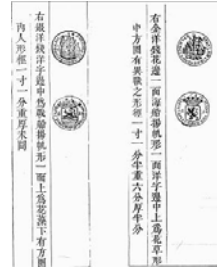 右金洋錢花邊一面海船揚帆形一面洋字邊中上為花草形
中方圓有異獸之形徑一寸一分半重六分厚半分
右銀洋錢洋字邊中為戰船揚帆形一面上為花藻下有方圓
內人形徑一寸一分重厚未同